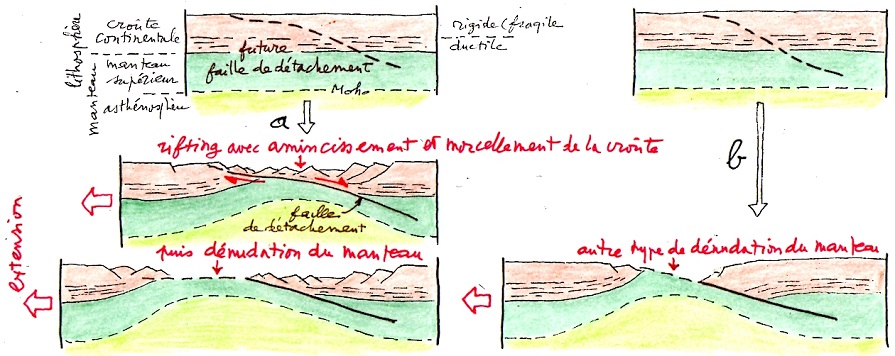 lithosphère
manteau
croûte
continentale
manteau
supérieur
asthénosphère
future
faille de détachement
Moho
rigide (fragile
ductile
a
b
rifting avec amincissement et morcellement de la croûte
faille
de détachement
extension
puis dénudation du manteau
autre type de dénudation du manteau